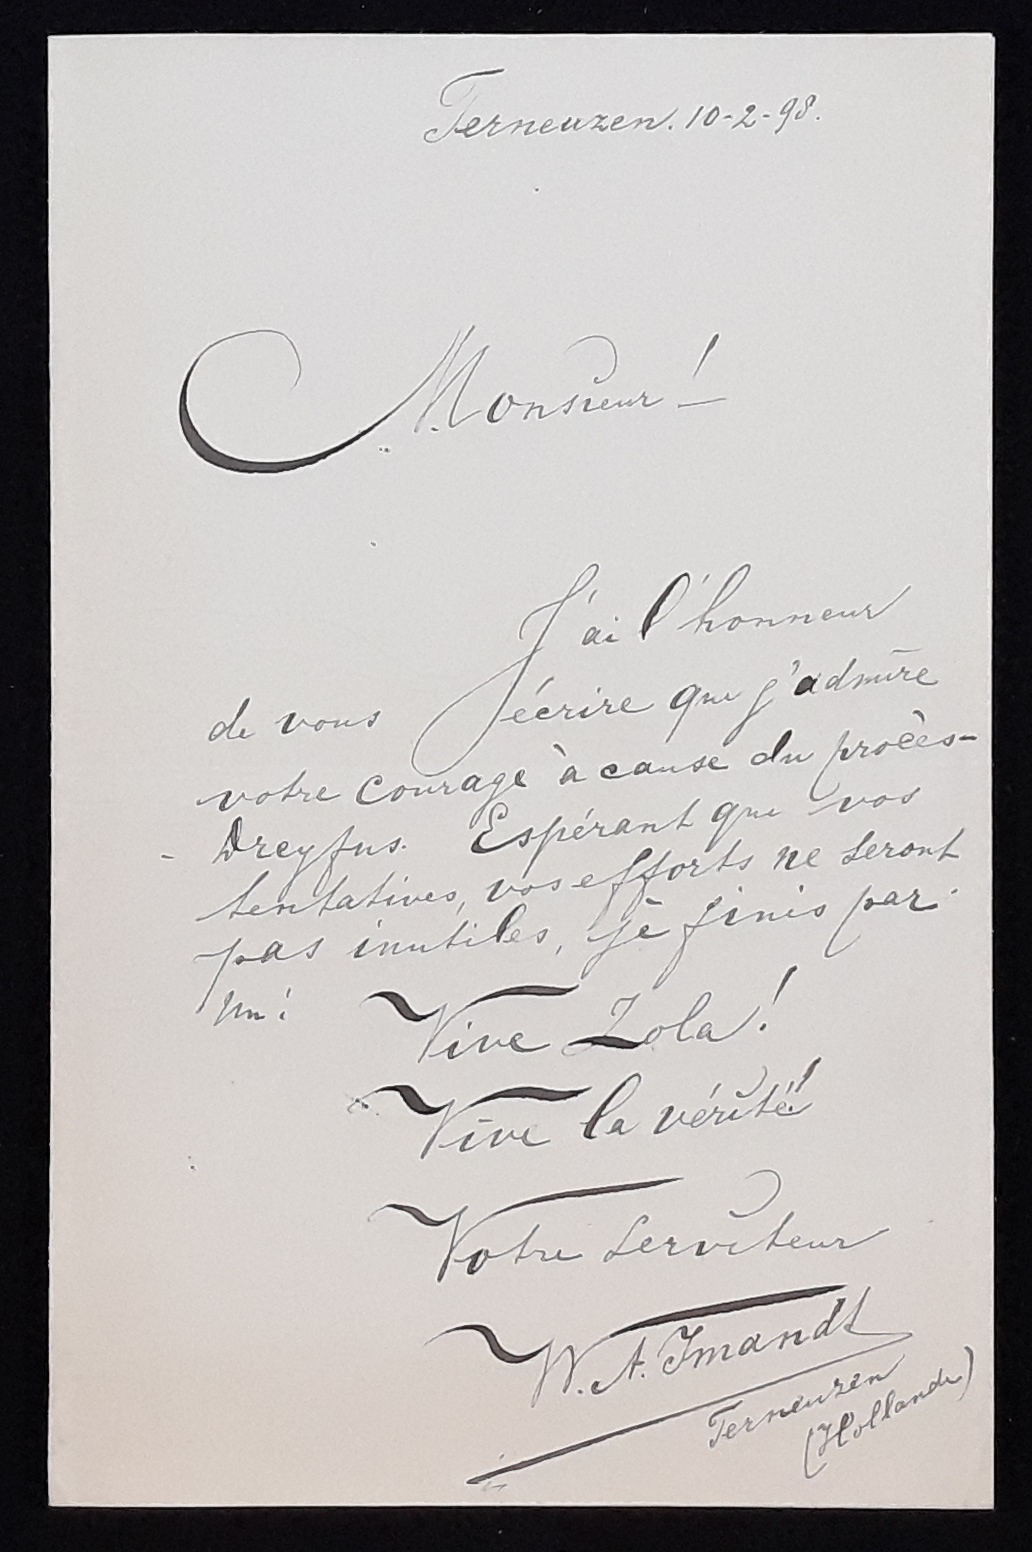 Terneuzen. 10-2-98.
Monsieur!
J'ai l'honneur
de vous écrire que j'admire
votre courage à cause du procès-
- Dreyfus. Espérant que vos
tentatives, vos efforts ne seront
pas inutiles, je finis par
un:
Vive Zola!
Vive la vérité!
Votre serviteur
W. A. Imandt
Terneuzen
(Hollande)